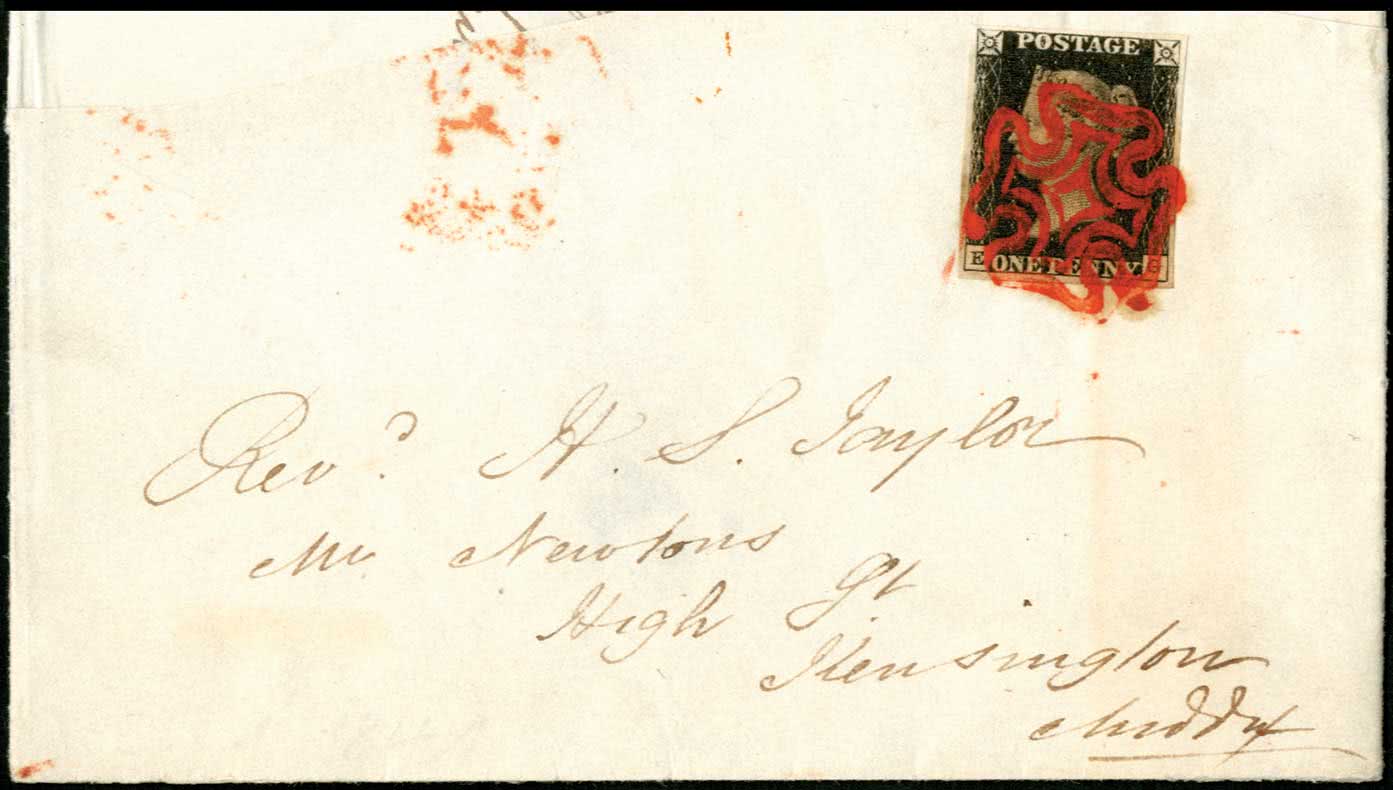 POSTAGE
E ONE PENNY G
Revd. H. S. Taylor
Mr Newtons
High St
Kensington
Middx